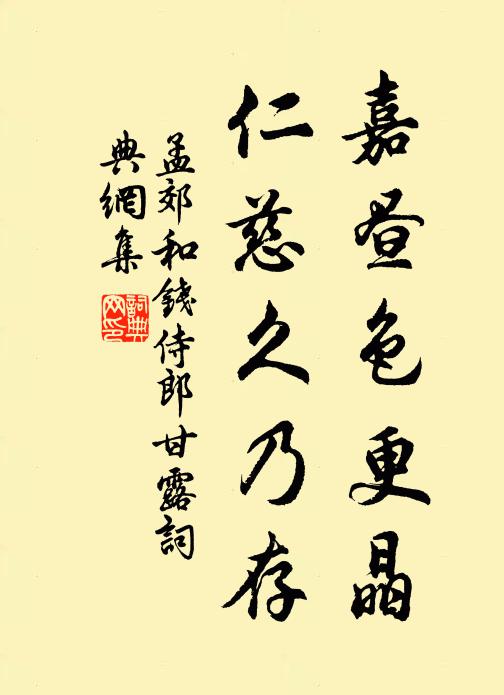 嘉昼色更晶
仁慈久乃存
孟郊和錢侍郎甘露詞
典網集
詞典
网印